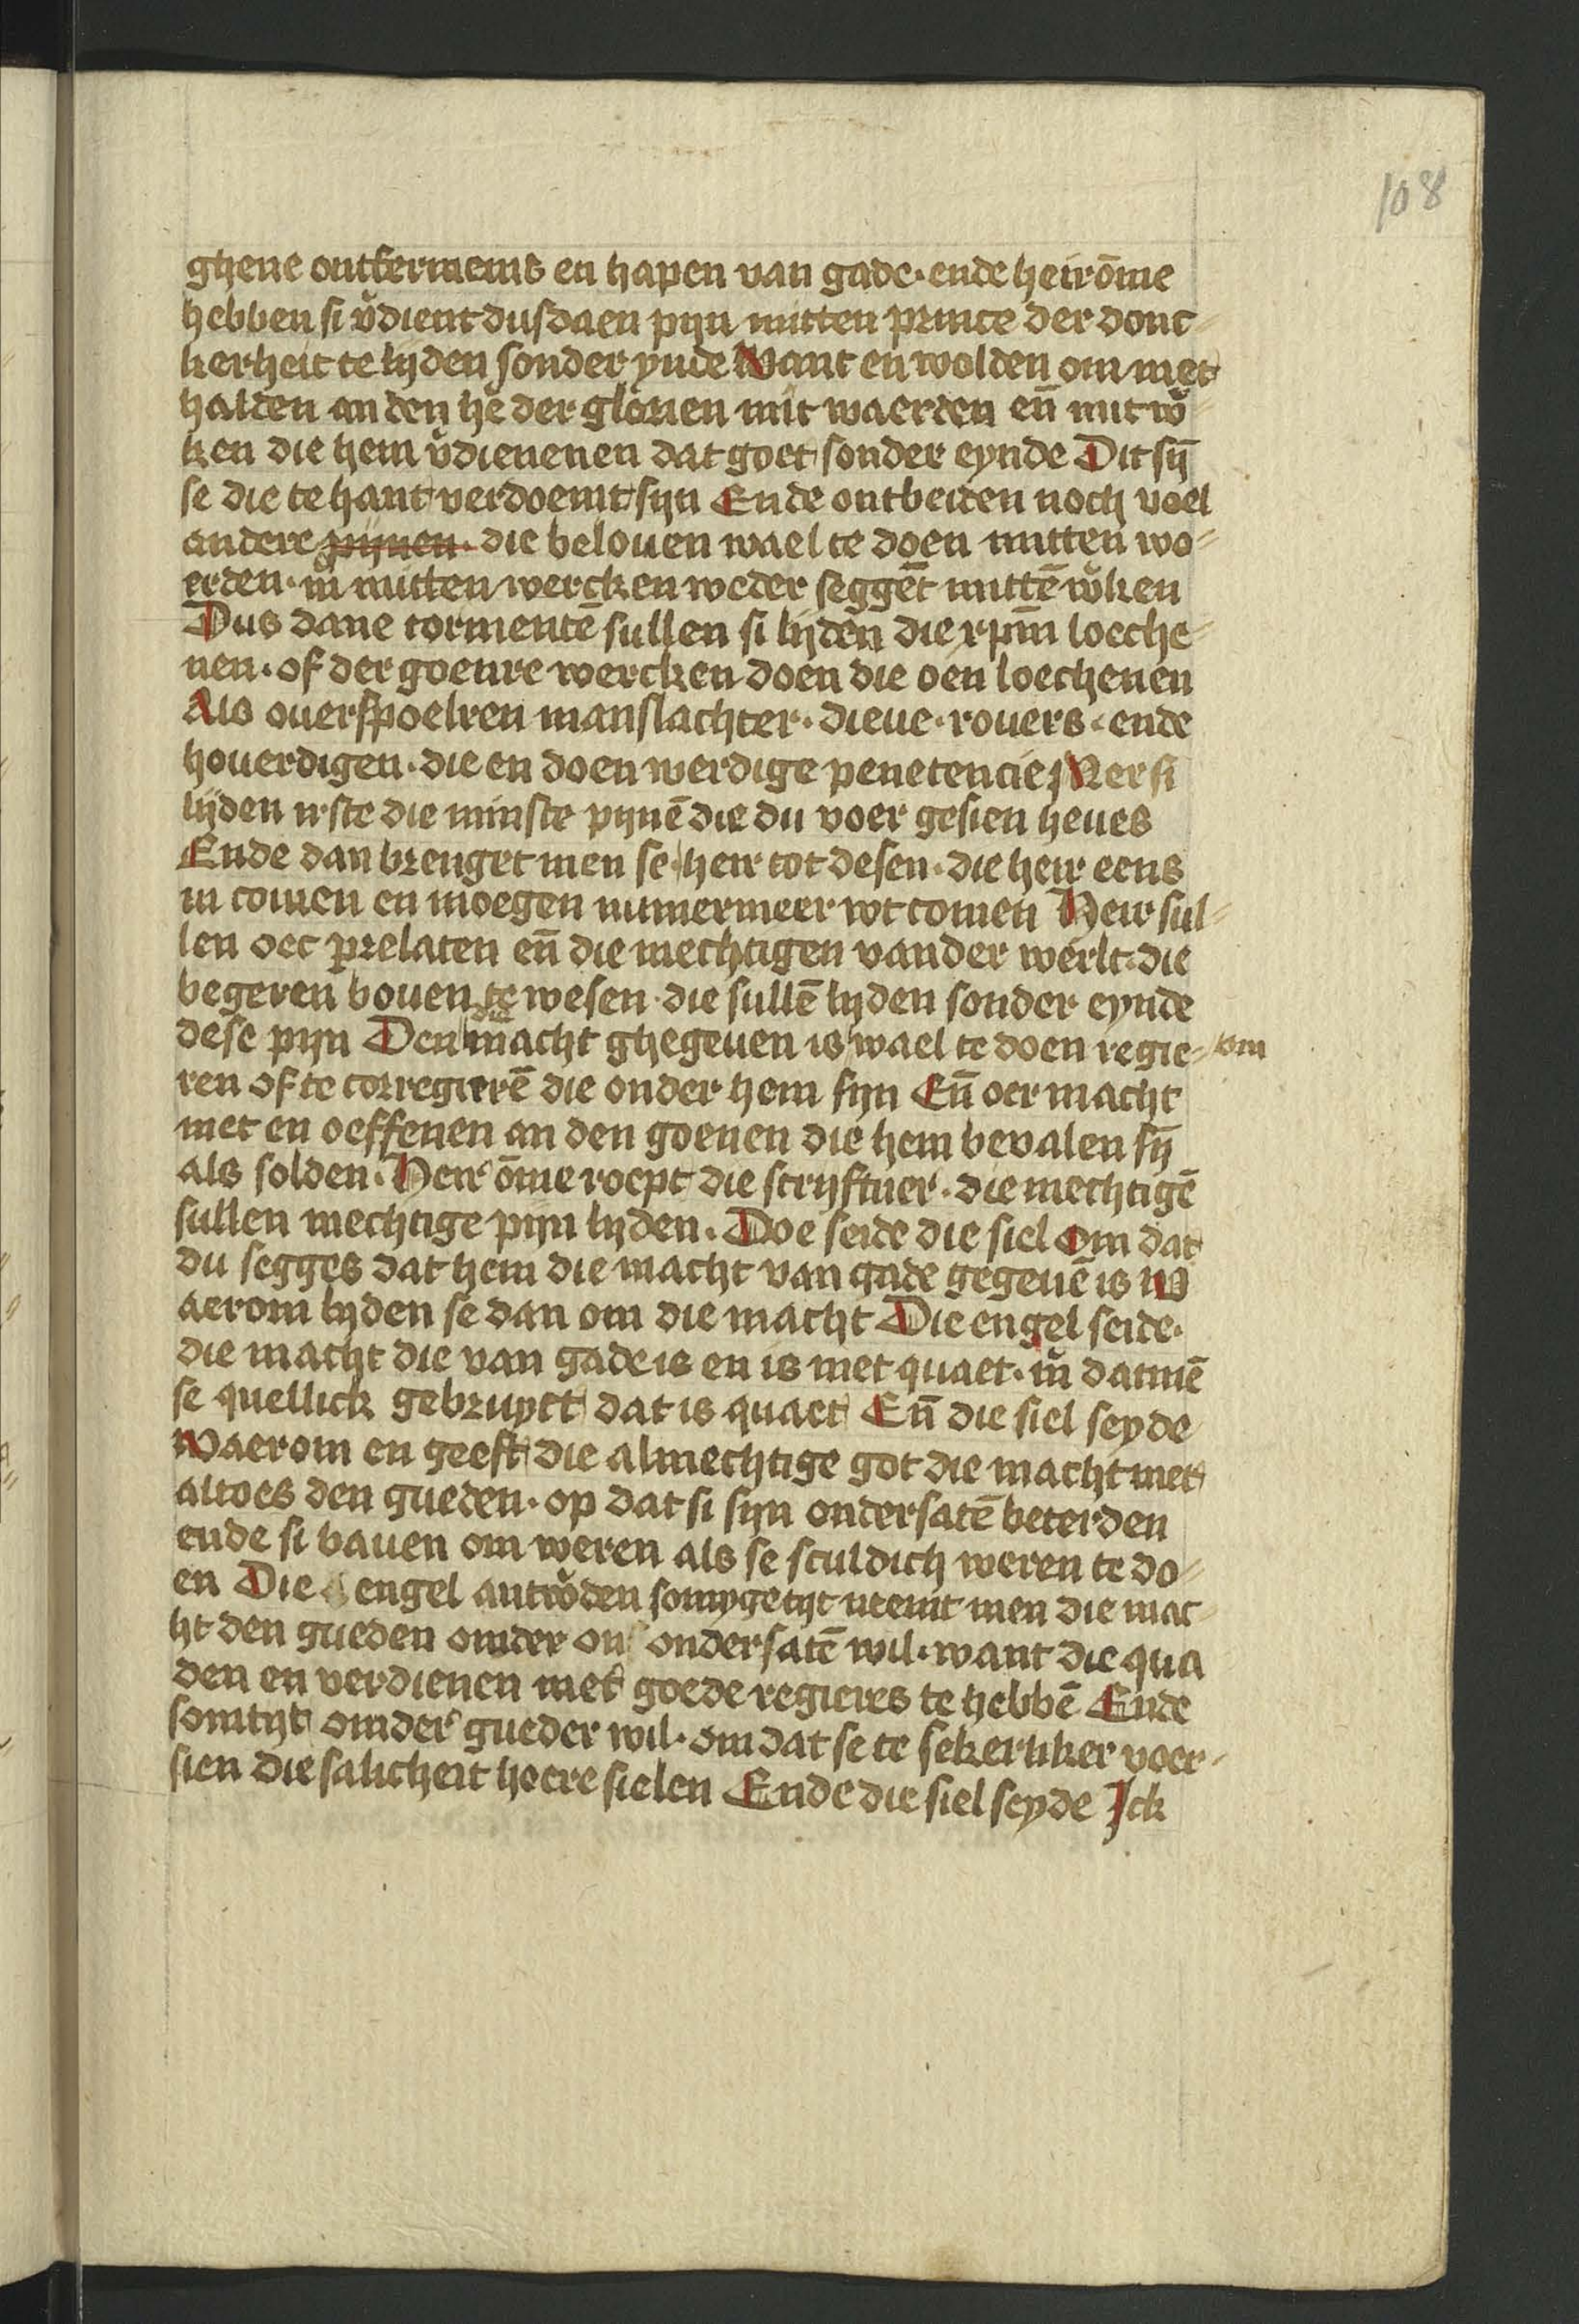 108
ghene ontfermenis en hapen van gade · ende heir ōme
hebben si v̄dient dusdaen pijn mitten prince der donc-
kerheit te lijden sonder ynde Want en wolden om niet
halden an den he der glorien mit waerden en̄ mit w̄-
ken die hem v̄dienenen dat goet sonder eynde Dit sij̄
se die te hant verdoemt sijn Ende ontbeiden noch voel
andere pijnen · die belouen wael te doen mitten wo-
erden · m̄ mitten wercken weder segget mittē w̄ken
Dus dane tormentē sullen si lijden die xpm̄ loeche-
nen · of der goenre wercken doen die oen loechenen
Als ouerspoelren manslachter · dieue · rouers · ende
houerdigen · die en doen werdige penetencie Mer si
lijden irste die minste pijnē die du voer gesien heues
Ende dan brenget men se heir tot desen · die heir eens
in comen en moegen nimermeer wt comen Heir sul-
len oec prelaten en̄ die mechtigen vander werlt · die
begeren bouen te wesen · die sullē lijden sonder eynde
dese pijn Den die macht ghegeuen is wael te doen regie- om
ren of te corregierē die onder hem sijn En̄ oer macht
niet en oeffenen an den goenen die hem beualen sij̄
als solden · Heir ōme roept die scrijftuer · die mechtigē
sullen mechtige pijn lijden · Doe seide die siel Om dat
du segges dat hem die macht van gade gegeuē is W
aerom lijden se dan om die macht Die engel seide ·
die macht die van gade is en is niet quaet · m̄ datmē
se quellick gebruyct dat is quaet En̄ die siel seyde
Waerom en geeft die almechtige got die macht niet
altoes den gueden · op dat si sijn ondersatē beterden
ende si bauen om weren als se sculdich weren te do-
en Die engel antw̄den somygetijt ntemt men die mac-
ht den gueden omder ondersatē wil · want die qua
den en verdienen niet goede regieres te hebbē Ende
somtijt omder gueder wil · om dat se te sekerliker voer-
sien die salicheit hoere sielen Ende die siel seyde Ick